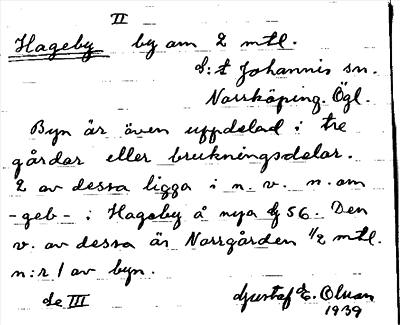 II
Hageby by om 2 mtl.
S:t Johannis sn.
Norrköping. Ögl.
Byn är även uppdelad i tre
gårdar eller brukningsdelar.
2 av dessa ligga i n. v. n. om
-geb- i Hageby å nya 56. Den
v. av dessa är Norrgården 1/2 mtl.
n:r 1 av byn.
Se III Gustaf E. Olsson
1939